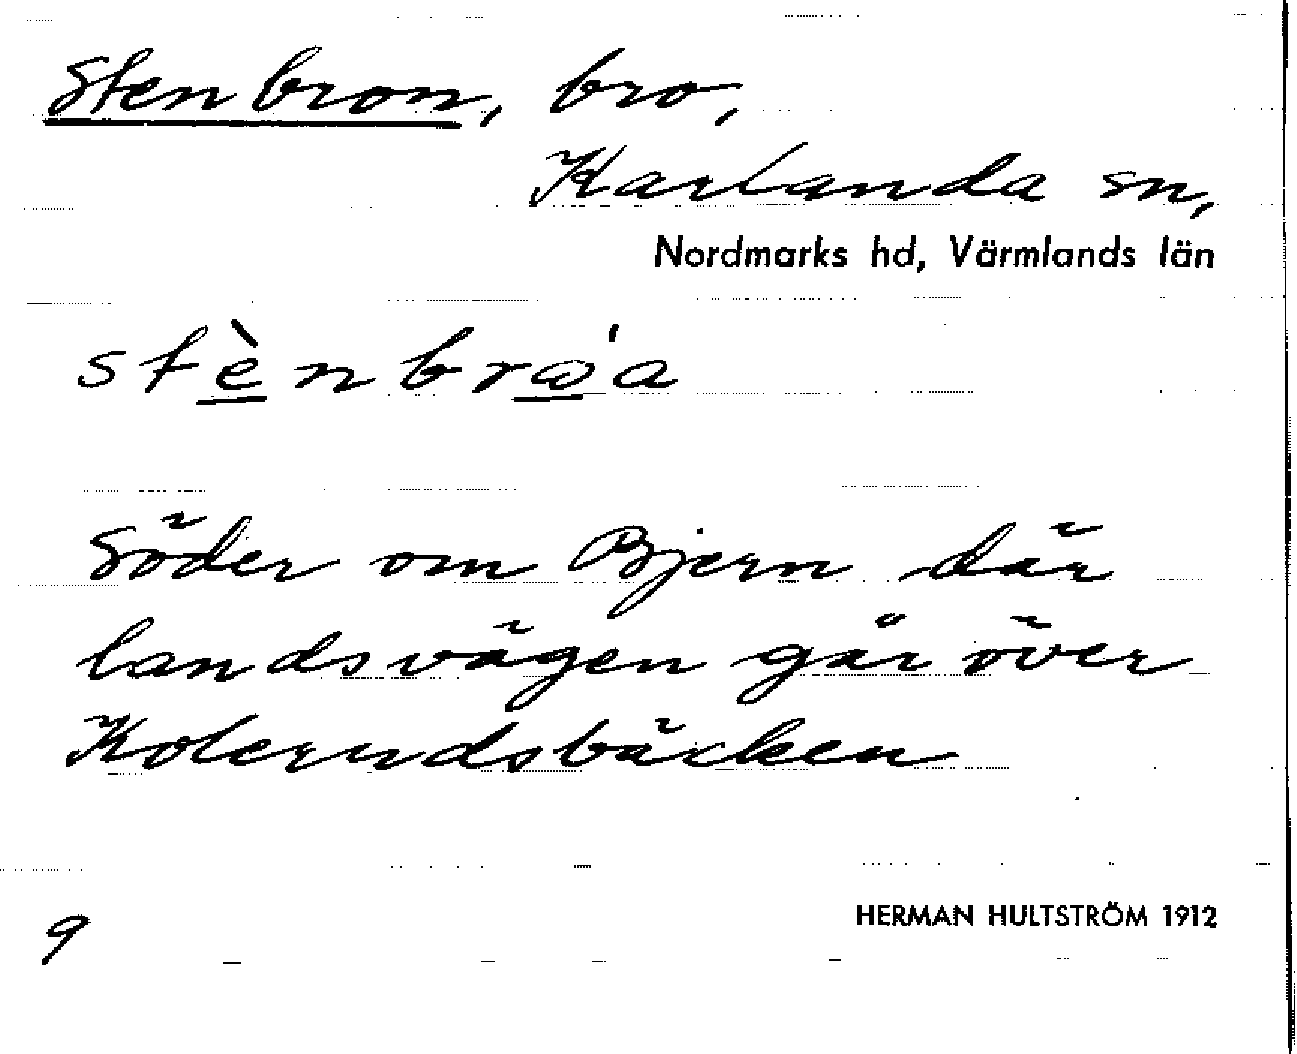 Stenbron, bro,
Karlanda sn,
Nordmarks hd, Värmlands län
stènbrω̇́a
Söder om Bjern där
landsvägen går över
Kolerudsbäcken
9
HERMAN HULTSTRÖM 1912